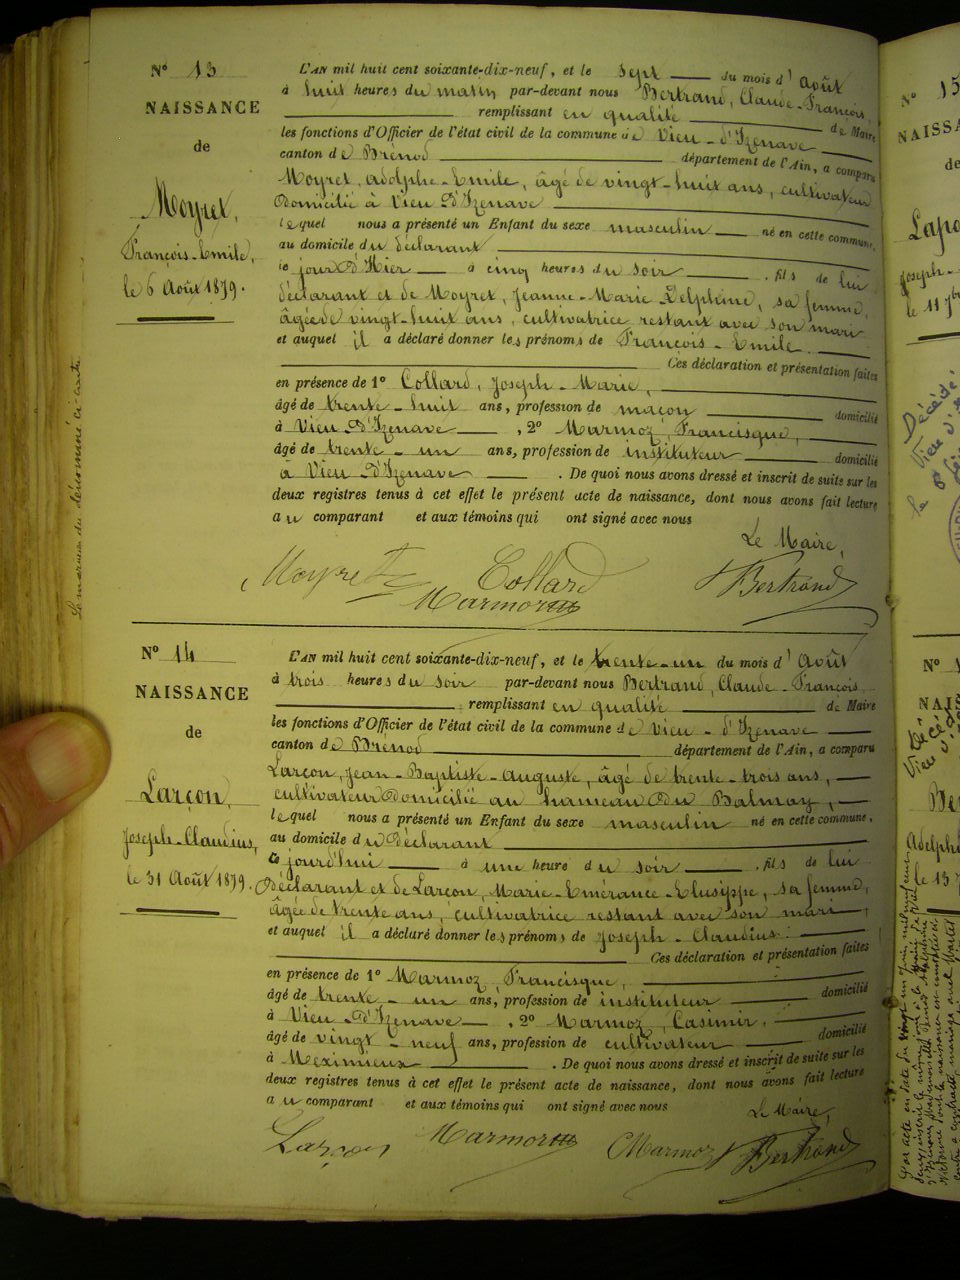 N° 13
NAISSANCE
de
Moyret,
François-Emile,
le 6 Août 1879.
L'AN mil huit cent soixante-dix-neuf, et le sept du mois d'Août
à huit heures du matin par-devant nous Bertrand, Claude-François,
remplissant en qualité de Maire
les fonctions d'Officier de l'état civil de la commune de Vieu-d'Izenave
canton de Brénod département de l'Ain, a comparu
Moyret, Adolphe-Emile, âgé de vingt-huit ans, cultivateur
Domicilié à Vieu-d'Izenave
lequel nous a présenté un Enfant du sexe masculin né en cette commune,
au domicile du déclarant
le jour d'Hier à cinq heures du soir, fils de lui
déclarant et de Moyret, Jeanne-Marie Delphine, sa femme,
âgée de vingt-huit ans, cultivatrice restant avec son mari
et auquel il a déclaré donner les prénoms de François-Emile.
Ces déclaration et présentation faites
en présence de 1° Collard, Joseph-Marie,
âgé de trente-huit ans, profession de maçon domicilié
à Vieu-d'Izenave, 2° Marmoz, Francisque,
âgé de trente-un ans, profession de instituteur domicilié
à Vieu-d'Izenave. De quoi nous avons dressé et inscrit de suite sur les
deux registres tenus à cet effet le présent acte de naissance, dont nous avons fait lecture
au comparant et aux témoins qui ont signé avec nous
Le Maire,
Moyret Collard Bertrand
Marmoz
N° 14
NAISSANCE
de
Larçon,
Joseph-Claudius,
le 31 Août 1879.
L'AN mil huit cent soixante-dix-neuf, et le trente-un du mois d'Août
à trois heures du soir par-devant nous Bertrand, Claude-François
remplissant en qualité de Maire
les fonctions d'Officier de l'état civil de la commune de Vieu-d'Izenave
canton de Brénod département de l'Ain, a comparu
Larçon, Jean-Baptiste-Auguste, âgé de trente-trois ans,
cultivateur Domicilié au hameau du Balmay,
lequel nous a présenté un Enfant du sexe masculin né en cette commune,
au domicile du Déclarant
ce jourd'hui à une heure du soir, fils de lui
Déclarant et de Larçon, Marie-Emérance-Elusippe, sa femme,
âgée de trente ans, cultivatrice restant avec son mari,
et auquel il a déclaré donner les prénoms de Joseph-Claudius.
Ces déclaration et présentation faites
en présence de 1° Marmoz, Francisque,
âgé de trente-un ans, profession de instituteur domicilié
à Vieu-d'Izenave, 2° Marmoz, Casimir,
âgé de vingt-neuf ans, profession de cultivateur domicilié
à Meximieux. De quoi nous avons dressé et inscrit de suite sur les
deux registres tenus à cet effet le présent acte de naissance, dont nous avons fait lecture
au comparant et aux témoins qui ont signé avec nous
Le Maire,
Larçon Marmoz CMarmoz Bertrand